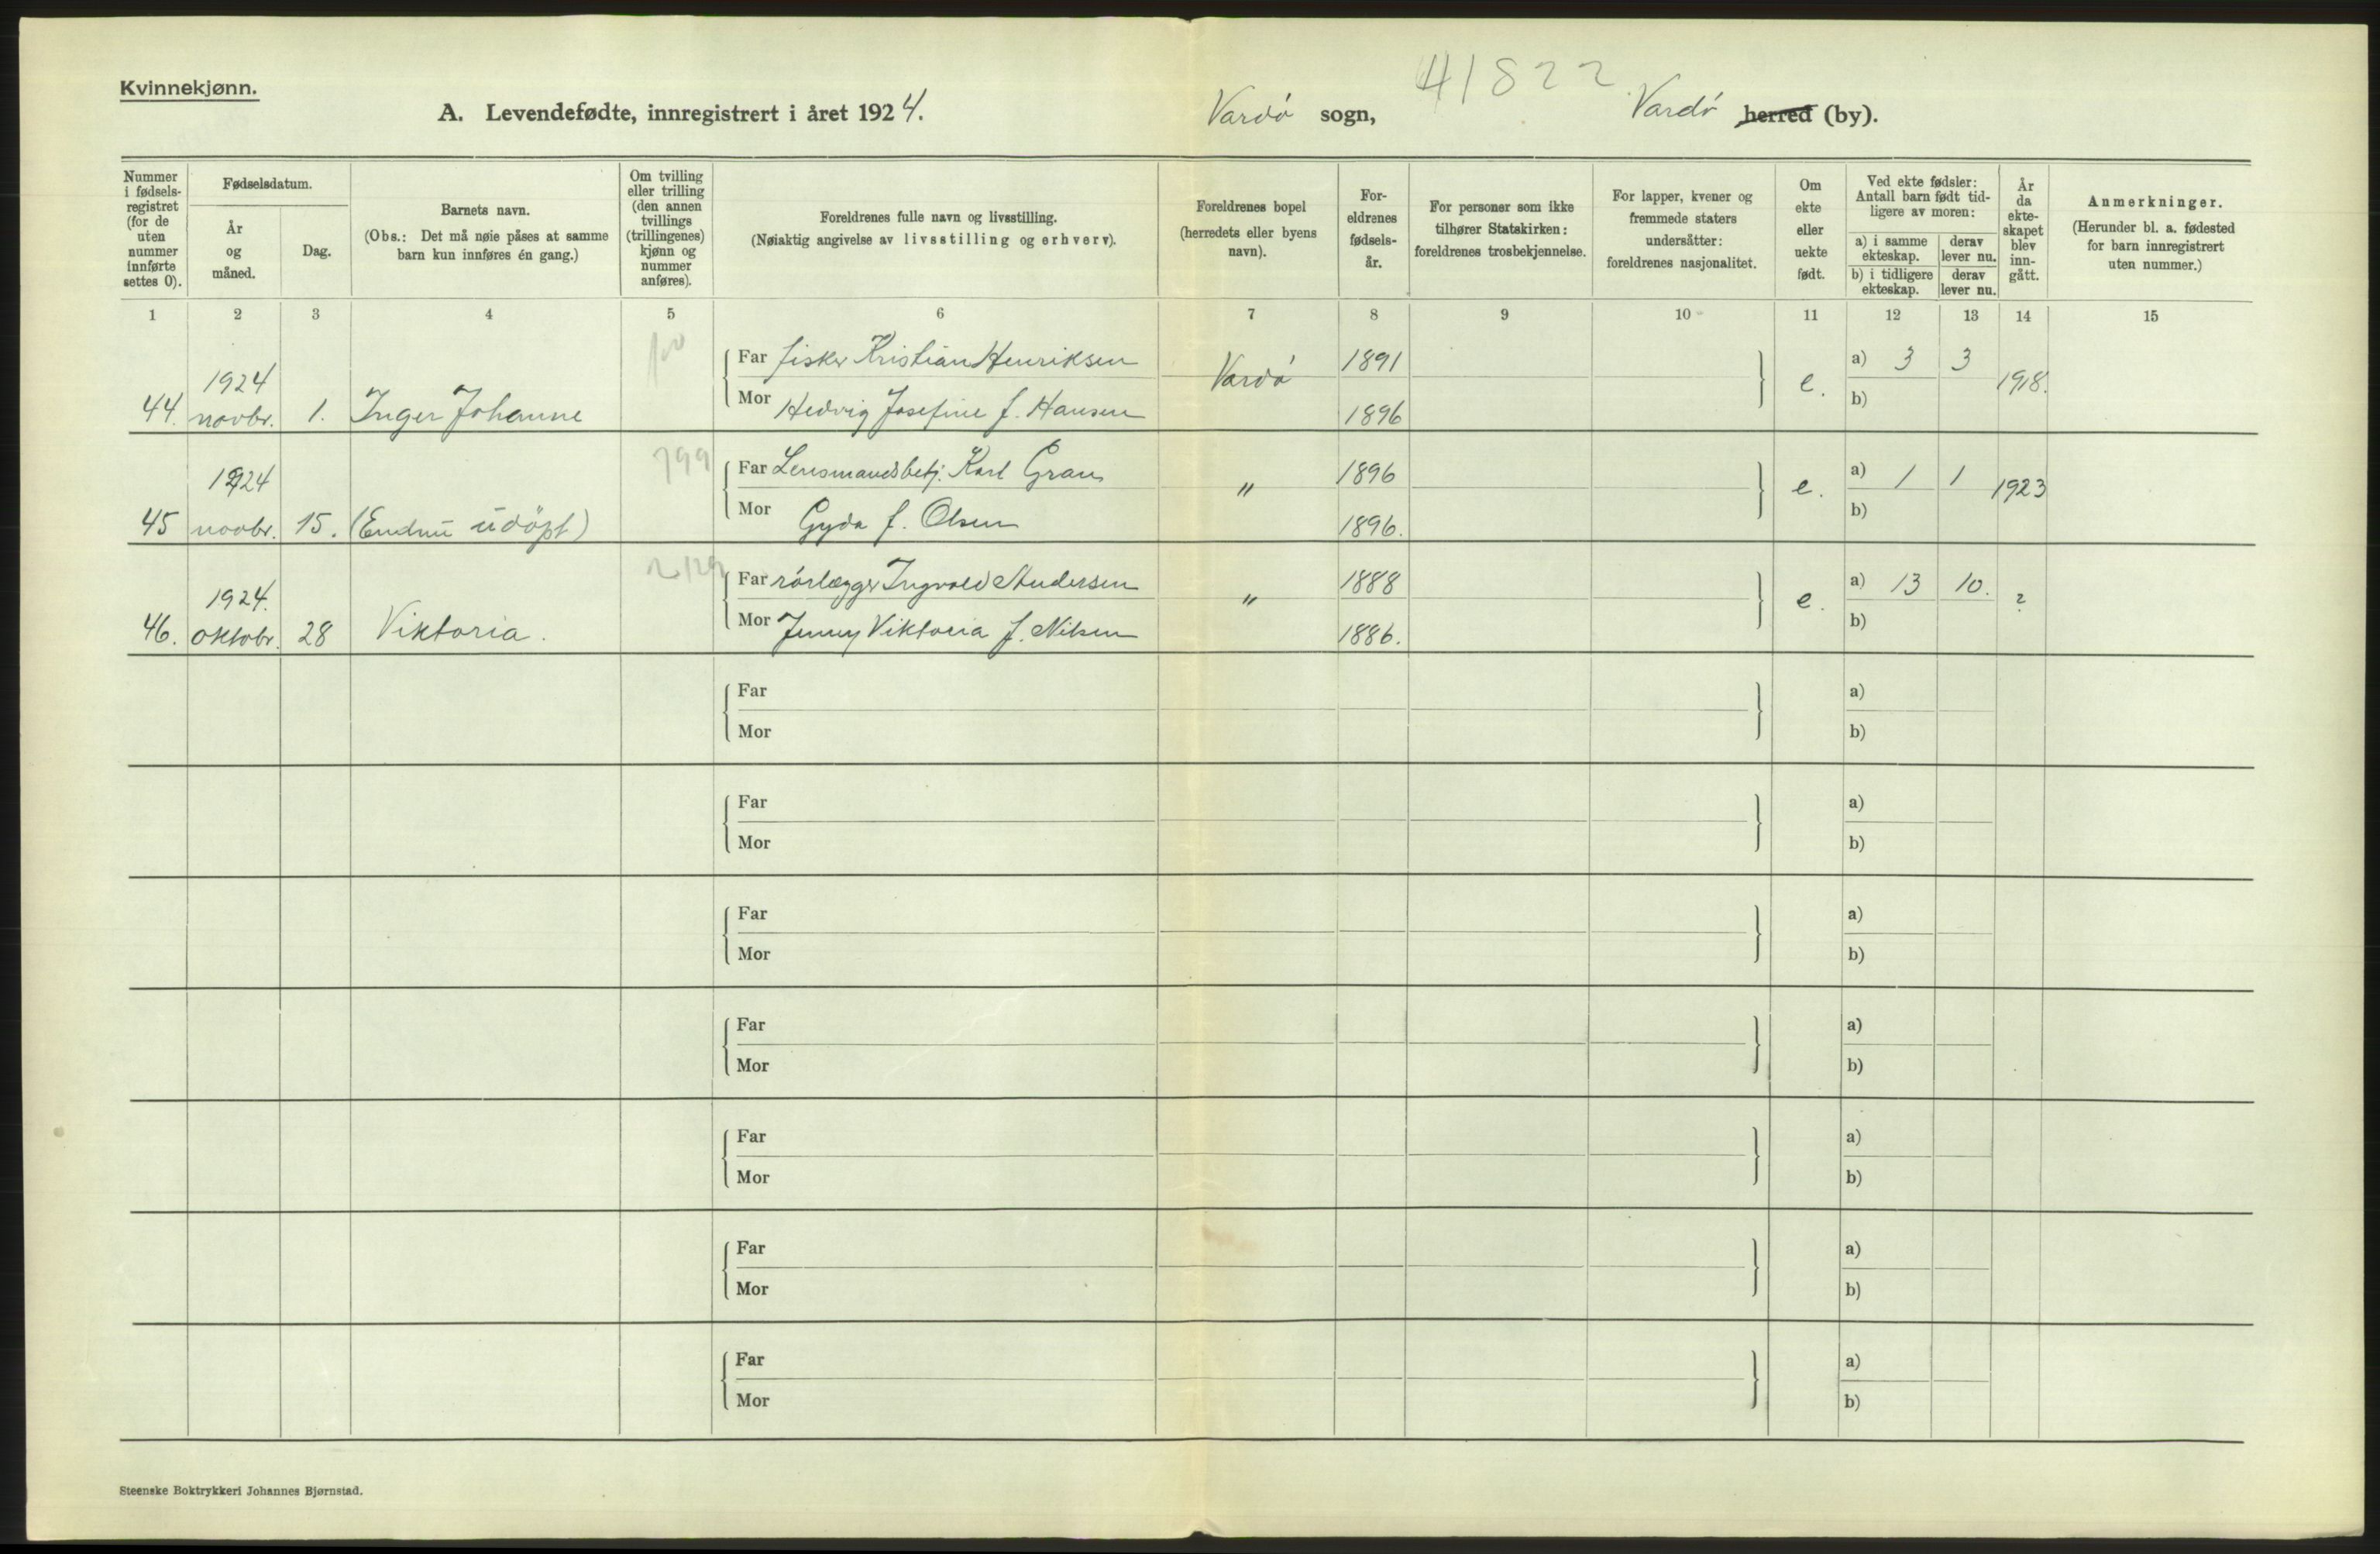 Kvinnekjønn.
A. Levendefødte, innregistrert i året 1924.
Vardø sogn,
41822
Vardø herred (by).
Nummer i fødsels-registret (for de uten nummer innførte settes 0).
Fødselsdatum.
År og måned.
Dag.
Barnets navn.
(Obs.: Det må nøie påses at samme barn kun innføres én gang.)
Om tvilling eller trilling (den annen tvillings (trillingenes) kjønn og nummer anføres).
Foreldrenes fulle navn og livsstilling.
(Nøiaktig angivelse av livsstilling og erhverv).
Foreldrenes bopel (herredets eller byens navn).
For-eldrenes fødsels-år.
For personer som ikke tilhører Statskirken: foreldrenes trosbekjennelse.
For lapper, kvener og fremmede staters undersåtter: foreldrenes nasjonalitet.
Om ekte eller uekte født.
Ved ekte fødsler: Antall barn født tid-ligere av moren:
a) i samme ekteskap.
derav lever nu.
b) i tidligere ekteskap.
derav lever nu.
År da ekte-skapet blev inn-gått.
Anmerkninger.
(Herunder bl. a. fødested for barn innregistrert uten nummer.)
1 2 3 4 5 6 7 8 9 10 11 12 13 14 15
Far fisker Kristian Henriksen 1891 a) 3 3
44. 1924 novbr. 1. Inger Johanne Vardø e. 1918.
Mor Hedvig Josefine f. Hansen 1896 b)
799
Far Lensmandsbetj. Karl Gran 1896 a) 1 1
45 1924 novbr. 15. (Endnu udöpt) " e. 1923
Mor Gyda f. Olsen 1896. b)
Far rörlægger Ingvald Andersen 1888 a) 13 10.
46. 1924. oktobr. 28 Viktoria. " e. ?
Mor Jenny Viktoria f. Nilsen 1886. b)
Far a)
Mor b)
Far a)
Mor b)
Far a)
Mor b)
Far a)
Mor b)
Far a)
Mor b)
Far a)
Mor b)
Far a)
Mor b)
Steenske Boktrykkeri Johannes Bjørnstad.